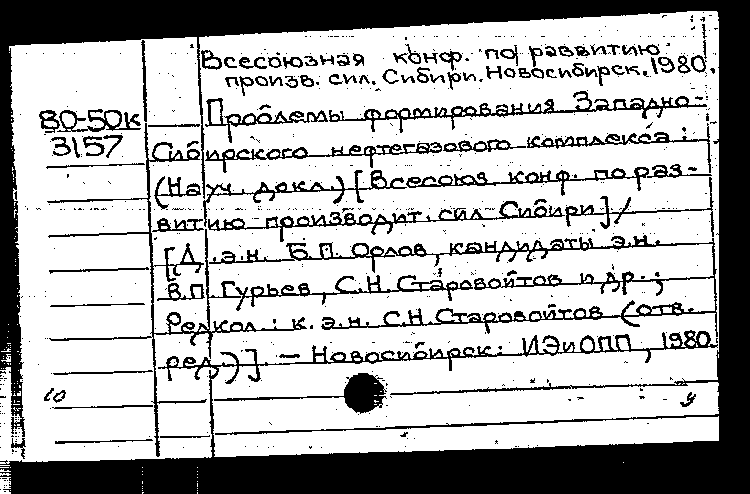 Всесоюзная конф. по развитию
произв. сил. Сибири. Новосибирск. 1980.
80-50к
3157
Проблемы формирования Западно-
Сибирского нефтегазового комплекса :
(Науч. докл.) [Всесоюз. конф. по раз-
витию производит. сил Сибири] /
[Д.э.н. Б.П. Орлов, кандидаты э.н.
В.П. Гурьев, С.Н. Старовойтов и др. ;
Редкол : к.э.н. С.Н. Старовойтов (отв.
ред.)]. — Новосибирск : ИЭиОПП, 1980
10
у